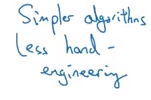 Simpler algorithms
Less hand-
engineering